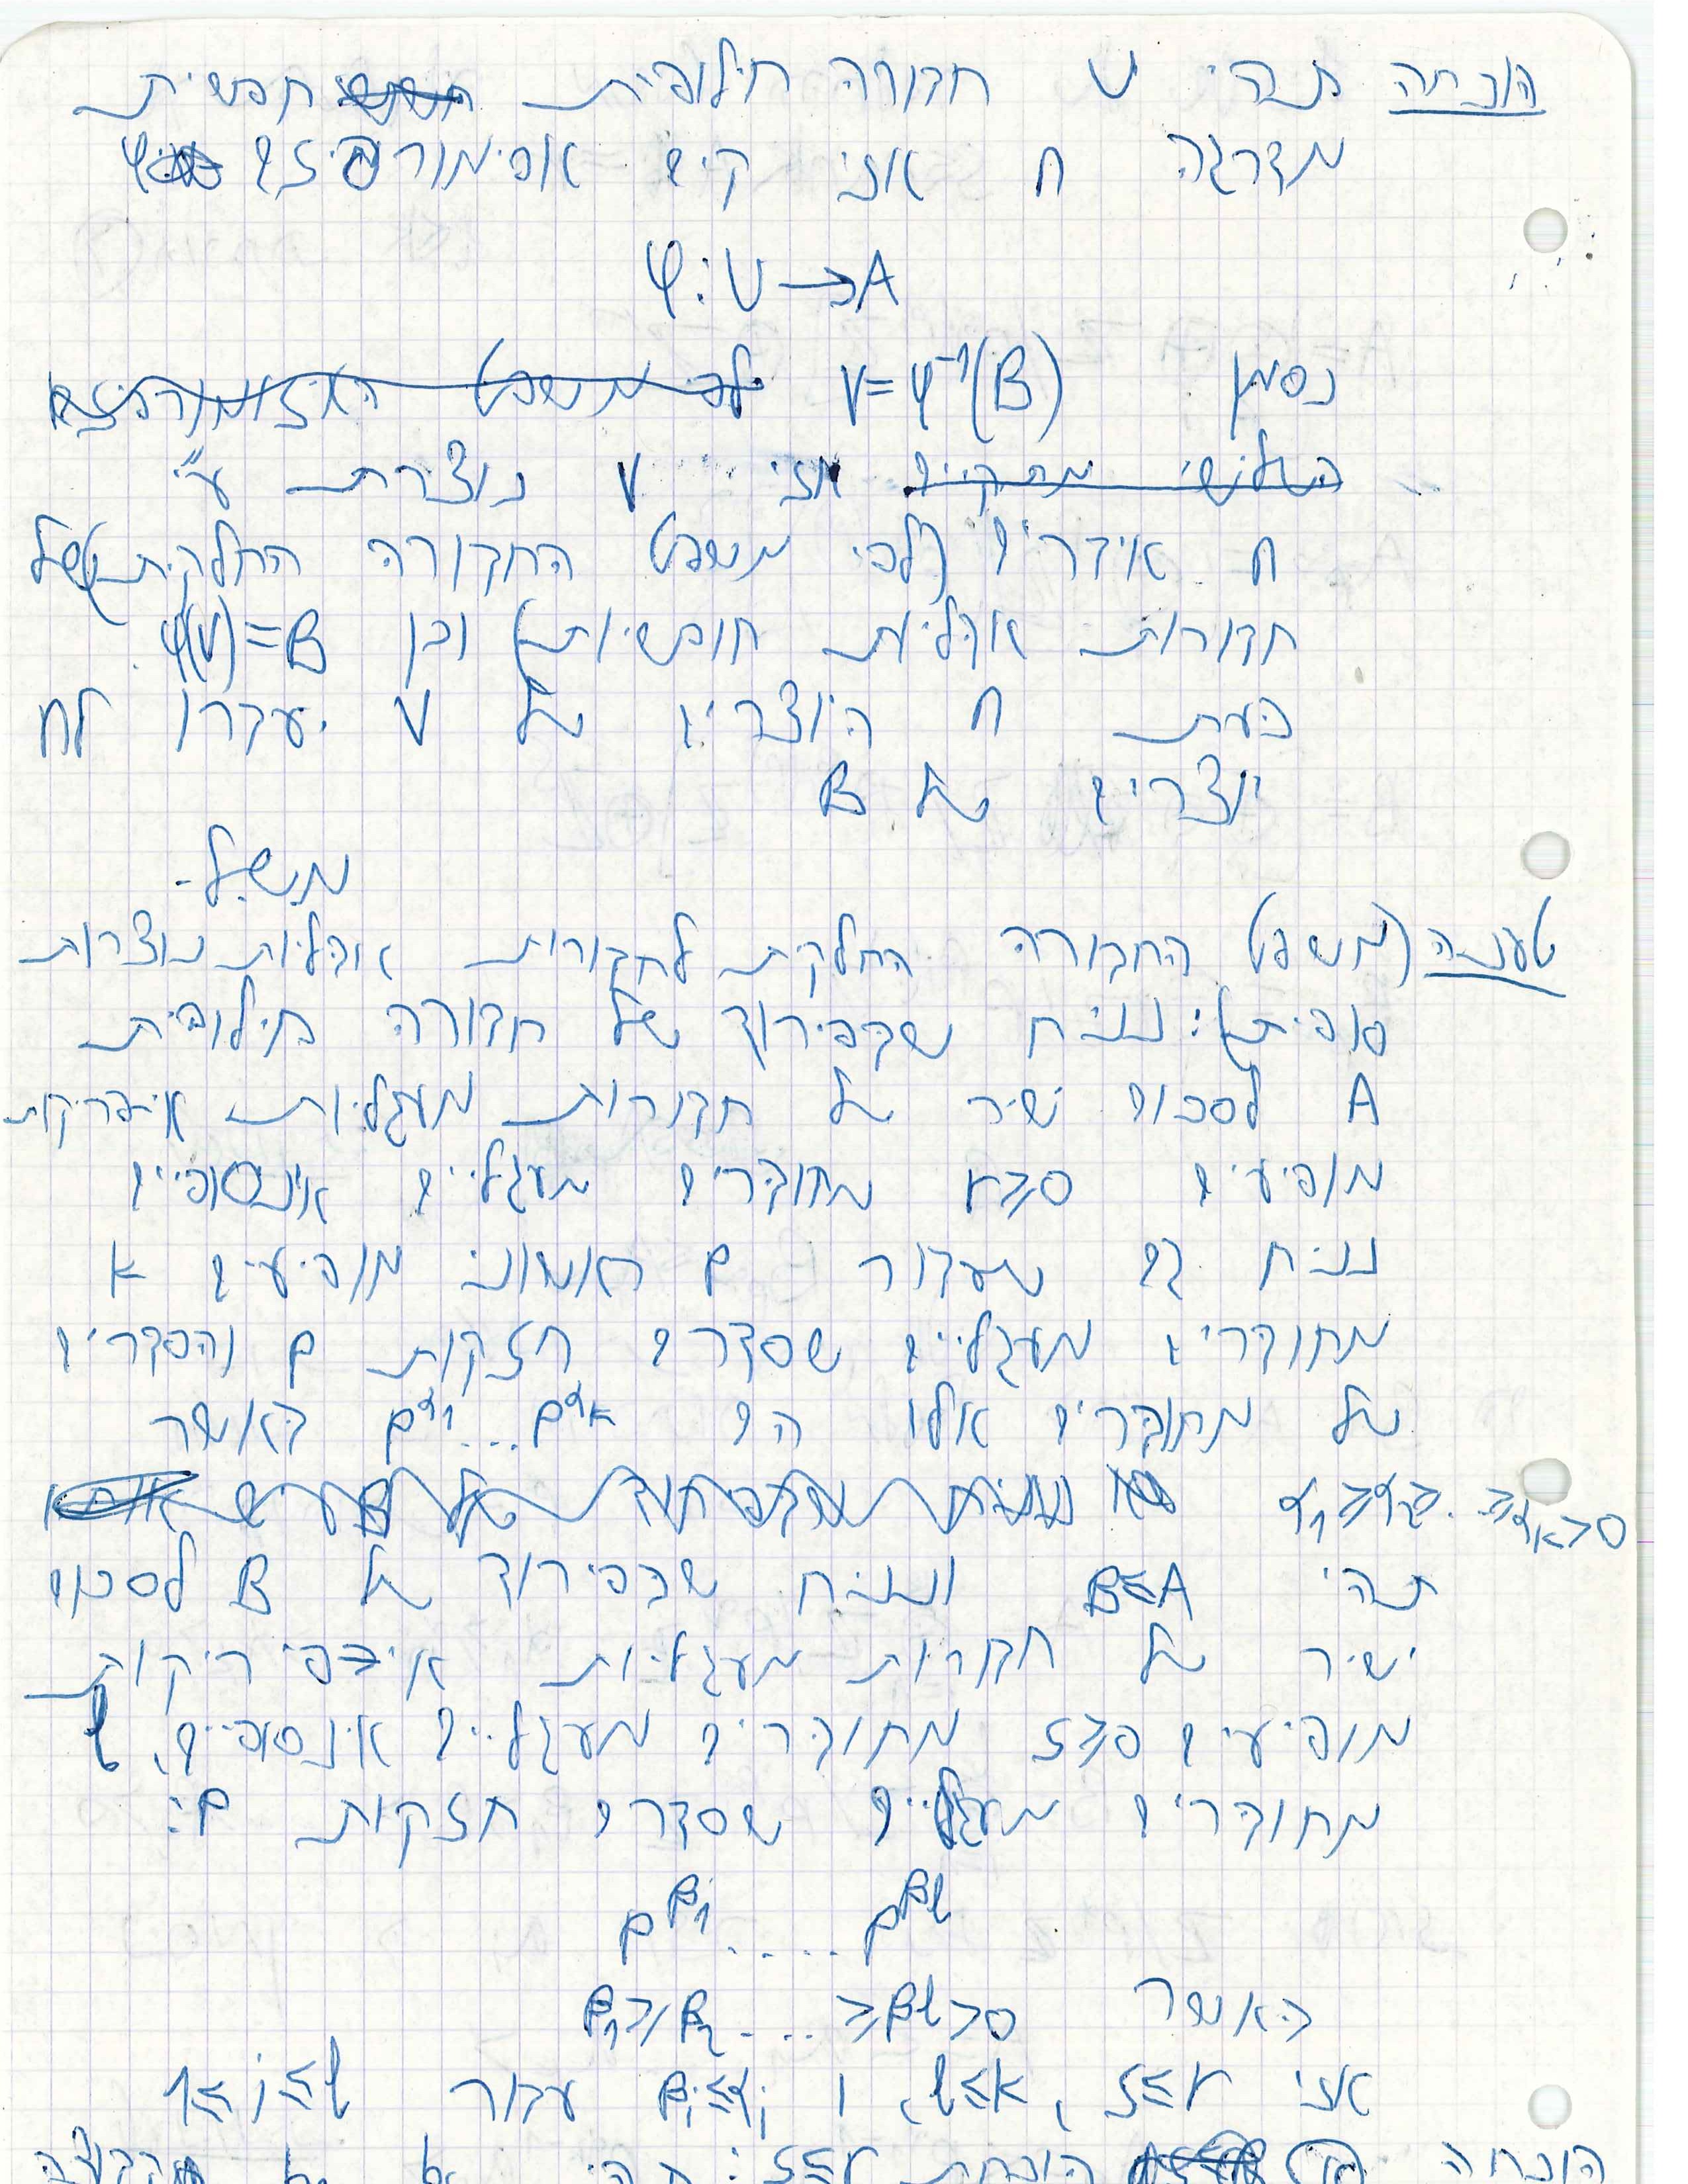 הוכחה תהי U חבורה חילופית חפשית
מדרגה n אזי קיים אפימורפיזם φ
φ:U→A
נסמן V=φ⁻¹(B) לפי משפט האיזומורפיזם
השלישי מתקיים אזי V נוצרת ע"י
n איברים (לפי משפט החבורה החלקית של
חבורות אבליות חופשיות) וכן φ(V)=B
כעת n היוצרים של V יעברו לn
יוצרים של B
מ.ש.ל.
טענה (משפט החבורה החלקית לחבורות אבליות נוצרות
סופית): נניח שבפירוק של חבורה חילופית
A לסכום ישר של חבורות מעגליות אי-פריקות
מופיעים r≥0 מחוברים מעגליים אינסופיים
נניח גם שעבור p ראשוני מופיעים k
מחוברים מעגליים שסדרם חזקות p והסדרים
של מחוברים אלו הם כאשר
תהי B≤A ונניח שבפירוק של B לסכום
ישר של חבורות מעגליות אי-פריקות
מופיעים s≥0 מחוברים מעגליים אינסופיים, l
מחוברים מעגליים שסדרם חזקות p:
p^β₁ ..... p^βl
כאשר β₁≥β₂≥....≥βl>0
אזי s≤r, l≤k, ו βi≤αi עבור 1≤i≤l
הוכחה הוכחת s≤r: תהי